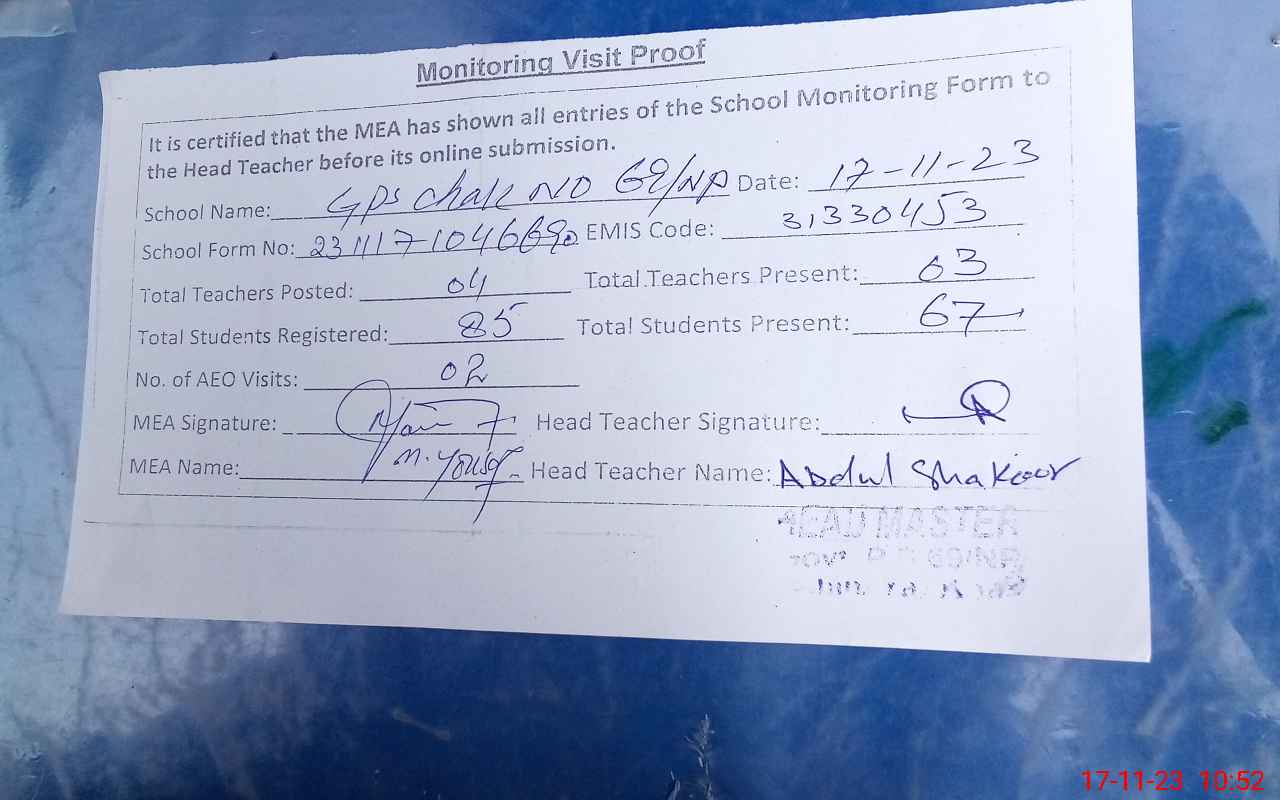 Monitoring Visit Proof
It is certified that the MEA has shown all entries of the School Monitoring Form to
the Head Teacher before its online submission.
School Name: GPS Chak NO 69/NP Date: 17-11-23
School Form No: EMIS Code: 31330453
Total Teachers Posted: 04 Total Teachers Present: 03
Total Students Registered: 85 Total Students Present: 67
No. of AEO Visits: 02
MEA Signature: Head Teacher Signature:
MEA Name: M. Yousaf Head Teacher Name: Abdul Shakoor
HEAD MASTER
69/NP
17-11-23 10:52